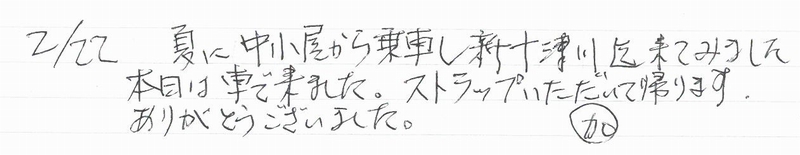 2/22 夏に中小屋から乗車し新十津川迄来てみました
本日は車で来ました。ストラップいただいて帰ります.
ありがとうございました。 加